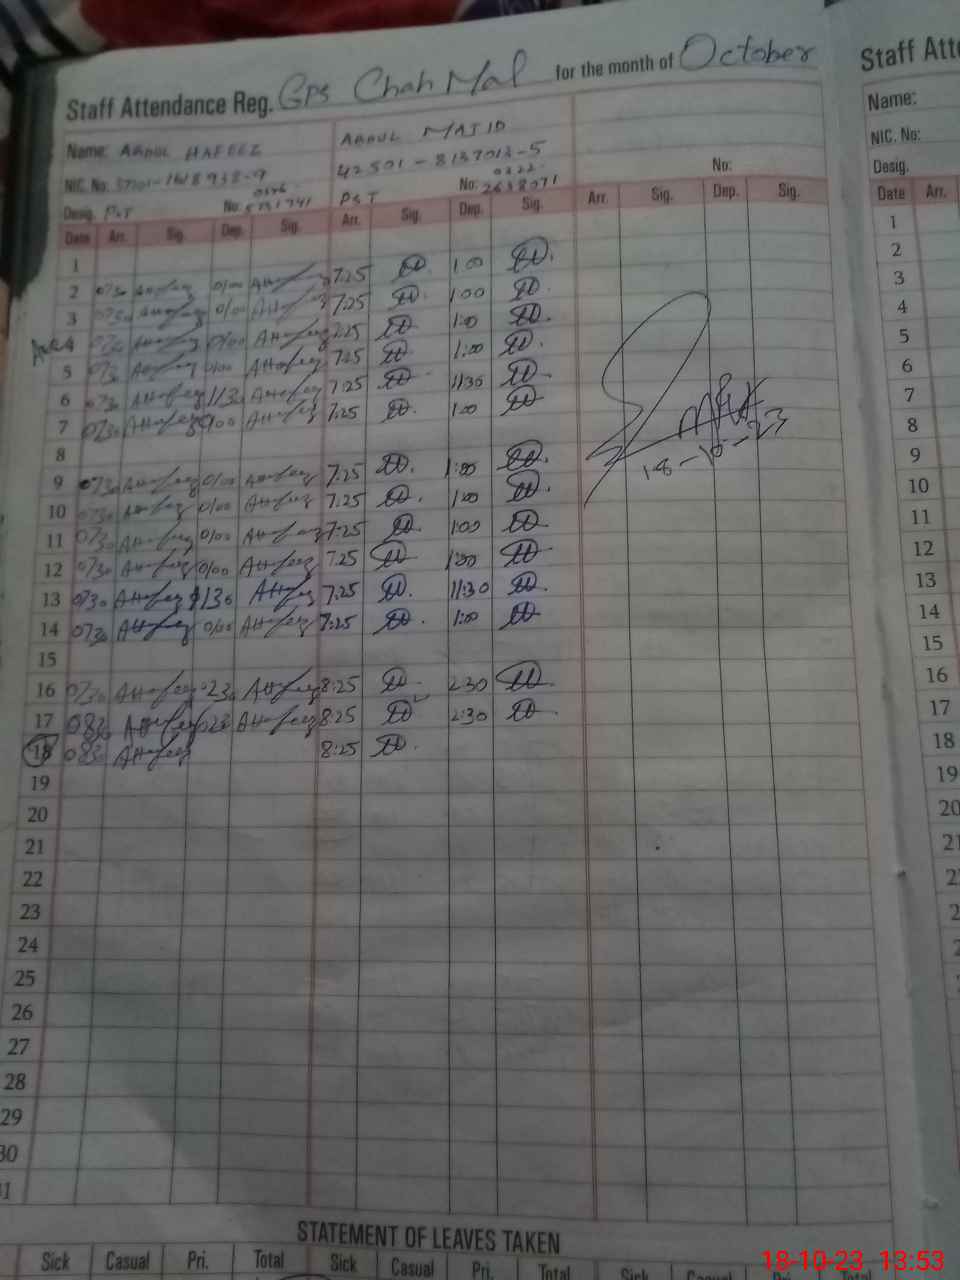 Staff Attendance Reg. Gps Chah Mal for the month of October
Name: ABDUL HAFEEZ ABDUL MAJID
NIC. No. 42501-8137013-5 No:
Desig. PST No: PST No: 0322-2638071
Date Arr. Sig. Dep. Sig. Arr. Sig. Dep. Sig. Arr. Sig. Dep. Sig.
1
2 0730 AHafeez 0100 AHafeez 7.25 1.00
3 0730 AHafeez 0100 AHafeez 7.25 1.00
4 0730 AHafeez 0100 AHafeez 7.25 1:00
5 0730 AHafeez 0100 AHafeez 7.25 1:00
6 0730 AHafeez 1130 AHafeez 7.25 11:30
7 0730 AHafeez 0100 AHafeez 7.25 1:00
8
9 0730 AHafeez 0100 AHafeez 7.25 1:00
10 0730 AHafeez 0100 AHafeez 7.25 1:00
11 0730 AHafeez 0100 AHafeez 7.25 1:00
12 0730 AHafeez 0100 AHafeez 7.25 1:00
13 0730 AHafeez 1130 AHafeez 7.25 11:30
14 0730 AHafeez 0100 AHafeez 7.25 1:00
15
16 AHafeez 0230 AHafeez 8:25 2:30
17 0830 AHafeez 0230 AHafeez 8:25 2:30
18 0830 AHafeez 8:25
19
20
21
22
23
24
25
26
27
28
29
30
31
18-10-23
STATEMENT OF LEAVES TAKEN
Sick Casual Pri. Total Sick Casual Pri. Total Sick Casual Pri. Total
Staff Atte
Name:
NIC. No:
Desig.
Date Arr.
1
2
3
4
5
6
7
8
9
10
11
12
13
14
15
16
17
18
19
20
18-10-23 13:53